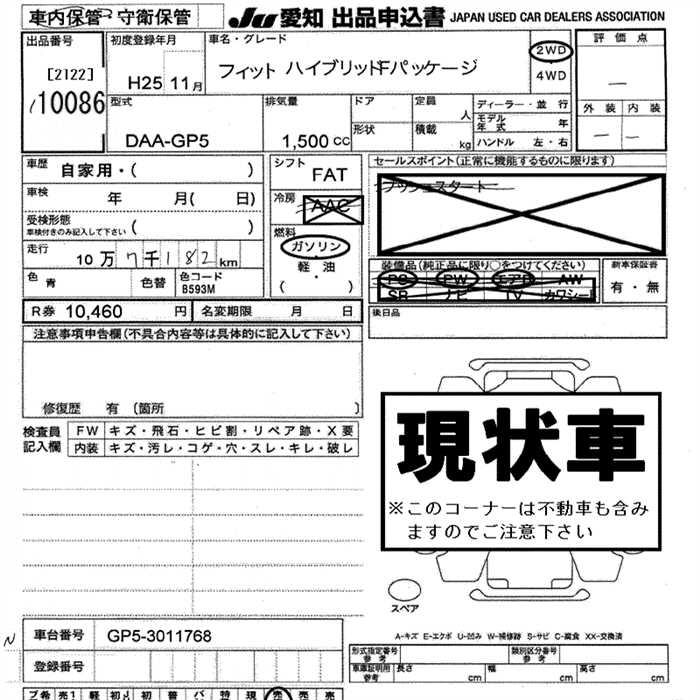 車内保管・守衛保管
JU 愛知 出品申込書 JAPAN USED CAR DEALERS ASSOCIATION
出品番号
[2122]
10086
初度登録年月
H25 11月
車名・グレード
フィット ハイブリッドFパッケージ
2WD
4WD
評価点
—
外装 内装
— —
型式
DAA-GP5
排気量
1,500 cc
ドア
形状
定員 人
積載 kg
ディーラー・並 行
モデル年式 年
ハンドル 左・右
車歴 自家用・( )
車検 年 月( 日)
受検形態
車検付きのみ記入して下さい ( )
走行 10万7千182km
色 青
色替
色コード
B593M
シフト
FAT
冷房
AAC
燃料
ガソリン
・
軽・油
( )
セールスポイント(正常に機能するものに限ります)
プッシュスタート
装備品(純正品に限り○をつけてください)
PS PW エアB AW
SR ナビ TV カワシート
新車保証書
有・無
R券 10,460 円
名変期限 月 日
後日品
注意事項申告欄(不具合内容等は具体的に記入して下さい)
修復歴 有 (箇所 )
検査員記入欄
FW キズ・飛石・ヒビ割・リペア跡・X要
内装 キズ・汚レ・コゲ・穴・スレ・キレ・破レ
現状車
※このコーナーは不動車も含み
ますのでご注意下さい
スペア
A-キズ E-エクボ U-凹み W-補修跡 S-サビ C-腐食 XX-交換済
N
車台番号 GP5-3011768
登録番号
形式指定番号
参考
類別区分番号
参考
車庫証明用
参考
長さ cm
幅 cm
高さ cm